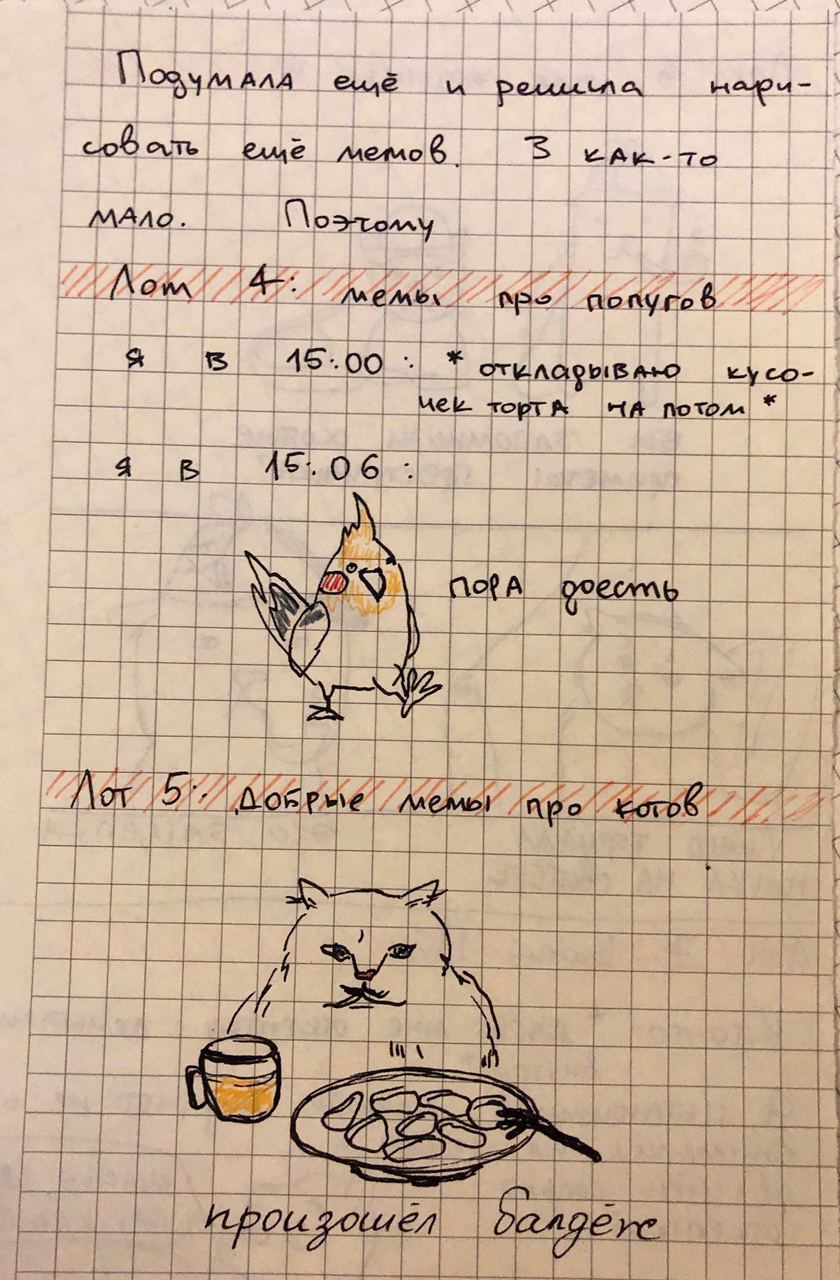 Подумала ещё и решила нари-
совать ещё мемов. 3 как-то
мало. Поэтому
Лот 4: мемы про попугов
я в 15:00 : * откладываю кусо-
чек торта на потом *
я в 15:06 :
пора доесть
Лот 5: добрые мемы про котов
произошёл балдёж